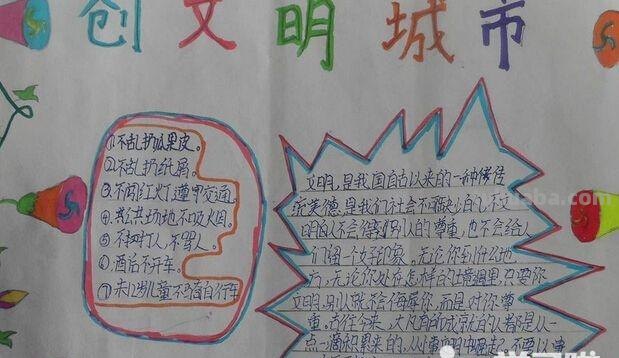 创文明城市
①不乱扔瓜果皮。
②不乱扔纸屑。
③不闯红灯,遵守交通。
④公共场地不吸烟。
⑤不打人,不骂人。
⑥酒后不开车。
⑦未12岁儿童不骑自行车
文明,是我国自古以来的一种传传
统美德,是我们社会不可缺少的,不文
明的人不会得到别人的尊重,也不会给人
们留一个好印象。无论你到什么地
方,无论你处在怎样的环境里,只要你
文明,别人就不会侮辱你,而是对你尊
重,古往今来,大凡有所成就的人都是从一
点一滴积累来的,从